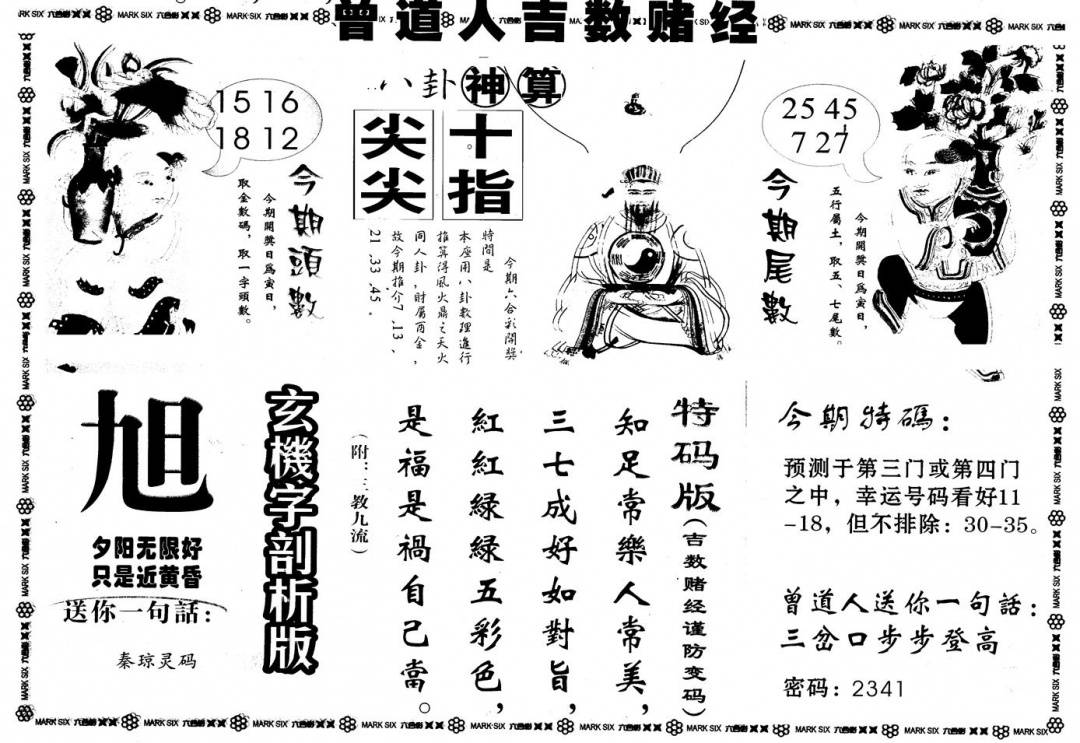 曾道人吉数赌经
八卦神算
15 16
18 12
今期頭數
今期開獎日爲寅日，
取金數碼，取一字頭數。
十指
尖尖
今期六合彩開獎
特間是
本座用八卦數理進行
推算得風火鼎之天火
同人卦，財屬酉金，
故今期推介7、13、
21、33、45。
25 45
7 27
今期尾數
今期開獎日爲寅日，
五行屬土，取五、七尾數。
旭
夕阳无限好
只是近黄昏
送你一句話：
秦琼灵码
玄機字剖析版
特码版（吉数赌经谨防变码）
知足常樂人常美，
三七成好如對旨，
紅紅緑緑五彩色，
是福是禍自己當。
（附：三教九流）
今期特碼：
预测于第三门或第四门
之中，幸运号码看好11
-18，但不排除：30-35。
曾道人送你一句話：
三岔口步步登高
密码：2341
MARK SIX 六合彩